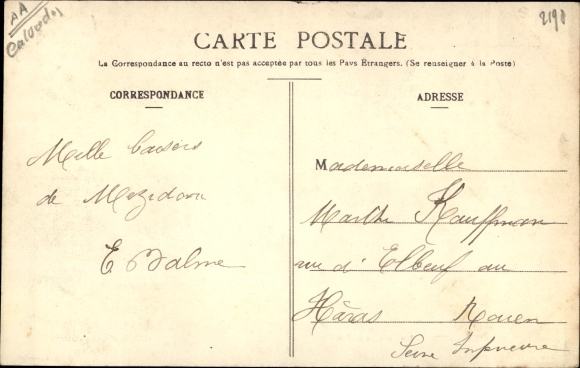 AA
Calvados
2190
CARTE POSTALE
La Correspondance au recto n'est pas acceptée par tous les Pays Étrangers. (Se renseigner à la Poste)
CORRESPONDANCE
Mille baisers
de Mezidon
E Balme
ADRESSE
Mademoiselle
Marthe Kauffman
rue d'Elbeuf au
Hâras Rouen
Seine Inferieure